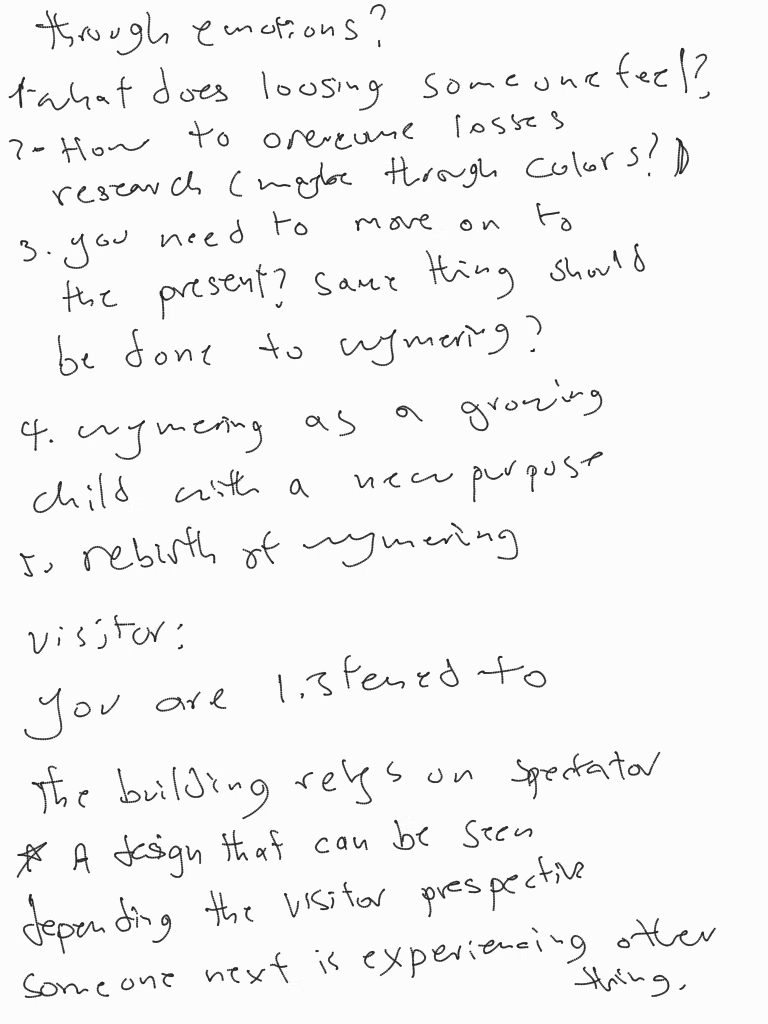 through emotions?
1- what does loosing someone feel?
2- How to overcome losses
research (maybe through colors?)
3. you need to move on to
the present? same thing should
be done to wymering?
4. wymering as a growing
child with a new purpose
5. rebirth of wymering
visitor:
you are listened to
The building relys on spectator
* A design that can be seen
depending the visitor prespective
someone next is experiencing other
thing.